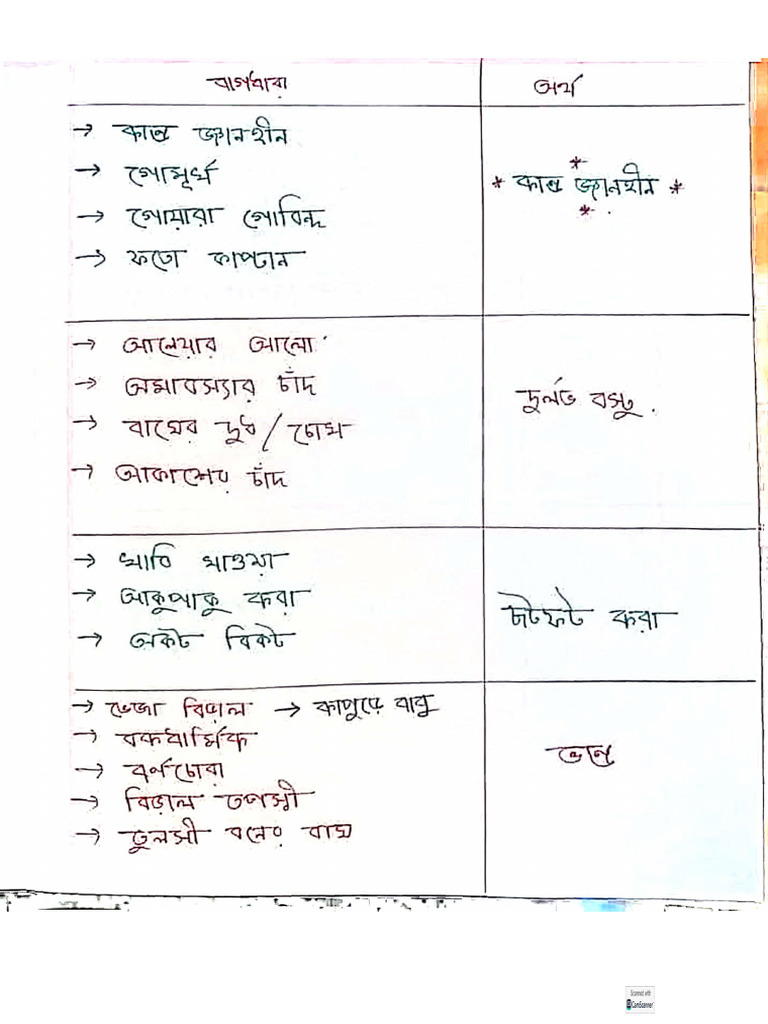 বাগধারা
অর্থ
→ কান্ড জ্ঞানহীন
→ গোমূর্খ
→ গোয়ারা গোবিন্দ
→ ফতো কাপ্তান
* কান্ড জ্ঞানহীন *
→ আলেয়ার আলো
→ অমাবস্যার চাঁদ
→ বাঘের দুধ / চোখ
→ আকাশের চাঁদ
দুর্লভ বস্তু .
→ খাবি খাওয়া
→ আকুপাকু করা
→ অকট বিকট
ছটফট করা
→ ভেজা বিড়াল → কাপুড়ে বাবু
→ বকধার্মিক
→ বর্ণচোরা
→ বিড়াল তপস্বী
→ তুলসী বনের বাঘ
ভন্ড
Scanned with
CamScanner